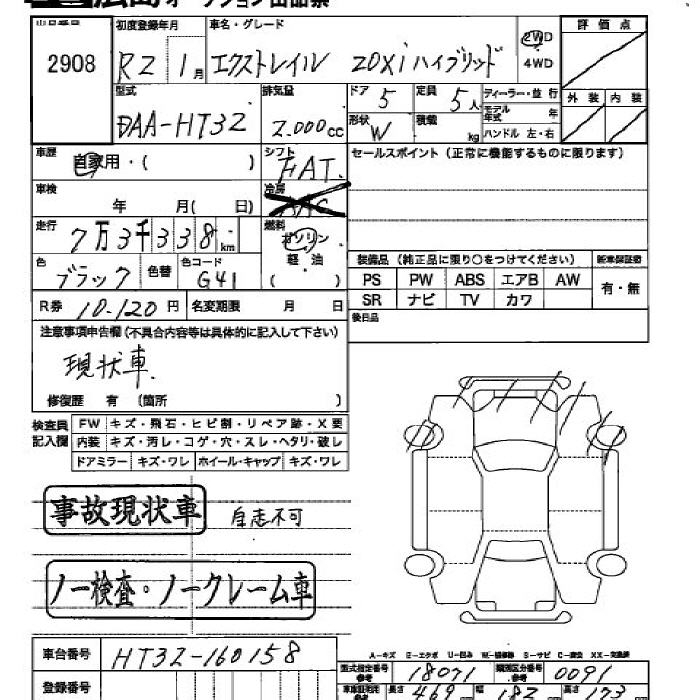 広島 オークション出品票
出品番号 初度登録年月 車名・グレード 評価点
2908 R2 1月 エクストレイル 20Xi ハイブリッド 2WD
4WD
型式 排気量 ドア 5 定員 5人 ディーラー・並行 外装 内装
DAA-HT32 2.000cc 形状 W 積載 kg モデル年式 年
ハンドル 左・右
車歴 自家用・( ) シフト FAT. セールスポイント(正常に機能するものに限ります)
車検 年 月( 日) 冷房 AAC
走行 7万3千338km 燃料 ガソリン
軽・油
( )
色 ブラック 色替 色コード G41
装備品(純正品に限り○をつけてください) 新車保証書
PS PW ABS エアB AW 有・無
SR ナビ TV カワ
R券 10.120円 名変期限 月 日 後日品
注意事項申告欄(不具合内容等は具体的に記入して下さい)
現状車.
修復歴 有 (箇所 )
検査員記入欄 FW キズ・飛石・ヒビ割・リペア跡・X要
内装 キズ・汚レ・コゲ・穴・スレ・ヘタリ・破レ
ドアミラー キズ・ワレ ホイール・キャップ キズ・ワレ
事故現状車 自走不可
ノー検査・ノークレーム車
A-キズ E-エクボ U-凹み S-サビ XX-交換済
車台番号 HT32-160158
型式指定番号 参考 18071 類別区分番号 参考 0091
登録番号 長さ 469 幅 182 173